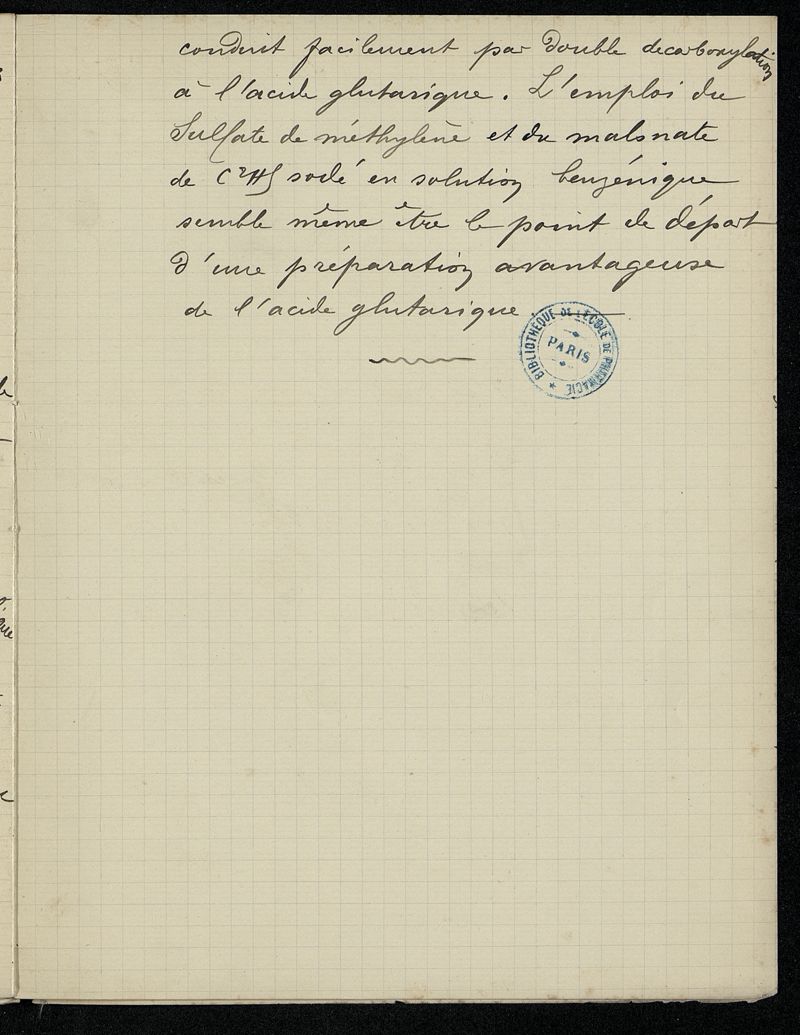 conduit facilement par double decarboxylation
à l'acide glutarique. L'emploi du
Sulfate de méthylène et du malonate
de C²H⁵ sodé en solution benzénique
semble même être le point de départ
d'une préparation avantageuse
de l'acide glutarique.
BIBLIOTHÈQUE DE L'ÉCOLE DE PHARMACIE
PARIS